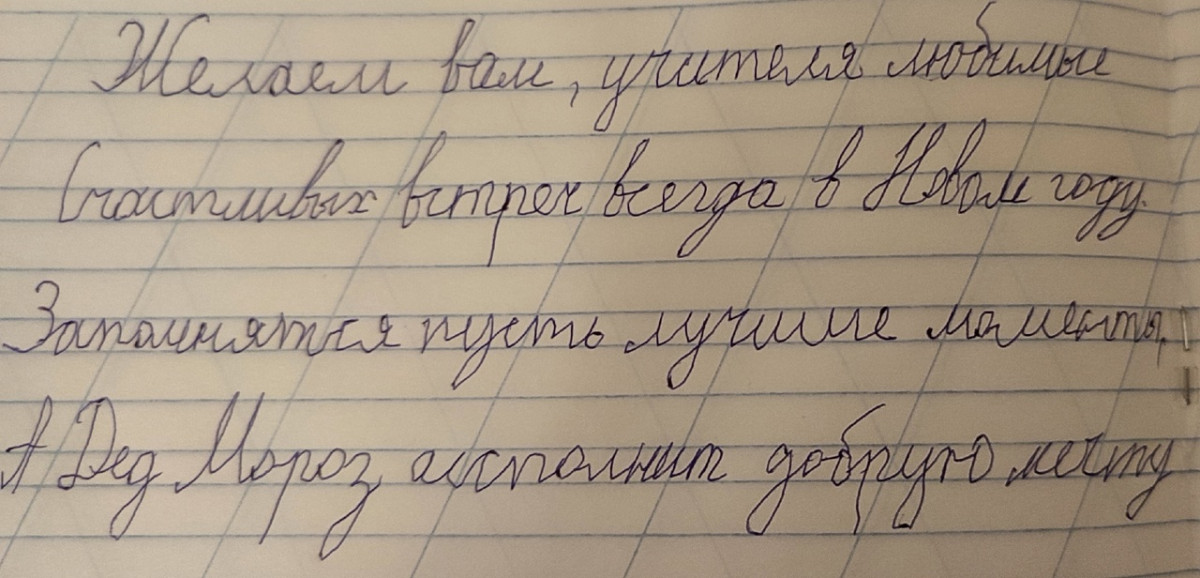 Желаем вам, учителя любимые
Счастливых встреч всегда в Новом году.
Запомнятся пусть лучшие моменты,
А Дед Мороз исполнит добрую мечту